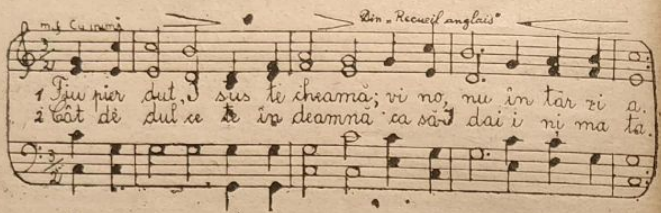 mf Cu inimă
Din „Recueil anglais"
1 Fiu pier dut, I sus te cheamă; vi no, nu în târ zi a.
2 Cât de dul ce te în deamnă ca să-I dai i ni ma ta.